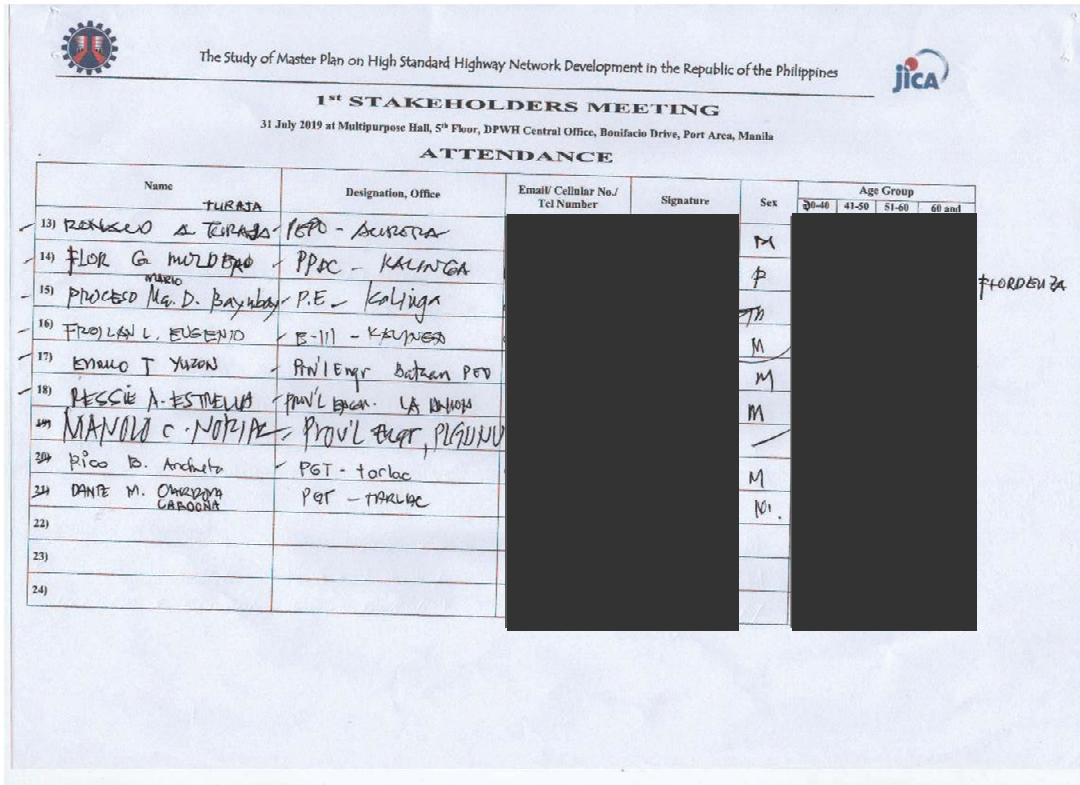 The Study of Master Plan on High Standard Highway Network Development in the Republic of the Philippines
jICA
1st STAKEHOLDERS MEETING
31 July 2019 at Multipurpose Hall, 5th Floor, DPWH Central Office, Bonifacio Drive, Port Area, Manila
ATTENDANCE
Name Designation, Office Email/ Cellular No./ Tel Number Signature Sex Age Group
20-40 41-50 51-60 60 and
TURAJA
13) A TURAJA PEPO - AURORA M
14) FLOR G PPDC - KALINGA F FLORDELIZA
MARIO
15) PROCESO Ma. D. Baynbay P.E - Kalinga M
16) FROILAN L. EUGENIO E-III - KALINGA M
17) T YUZON Prv'l Engr Bataan PEO M
18) RESSIE A. ESTRELLA PROV'L ENGR. LA UNION M
19) MANOLO C. PROV'L Engr,
20) Rico B. Ancheta PGT - tarlac M
21) DANTE M. PGT - TARLAC M.
CARDONA
22)
23)
24)